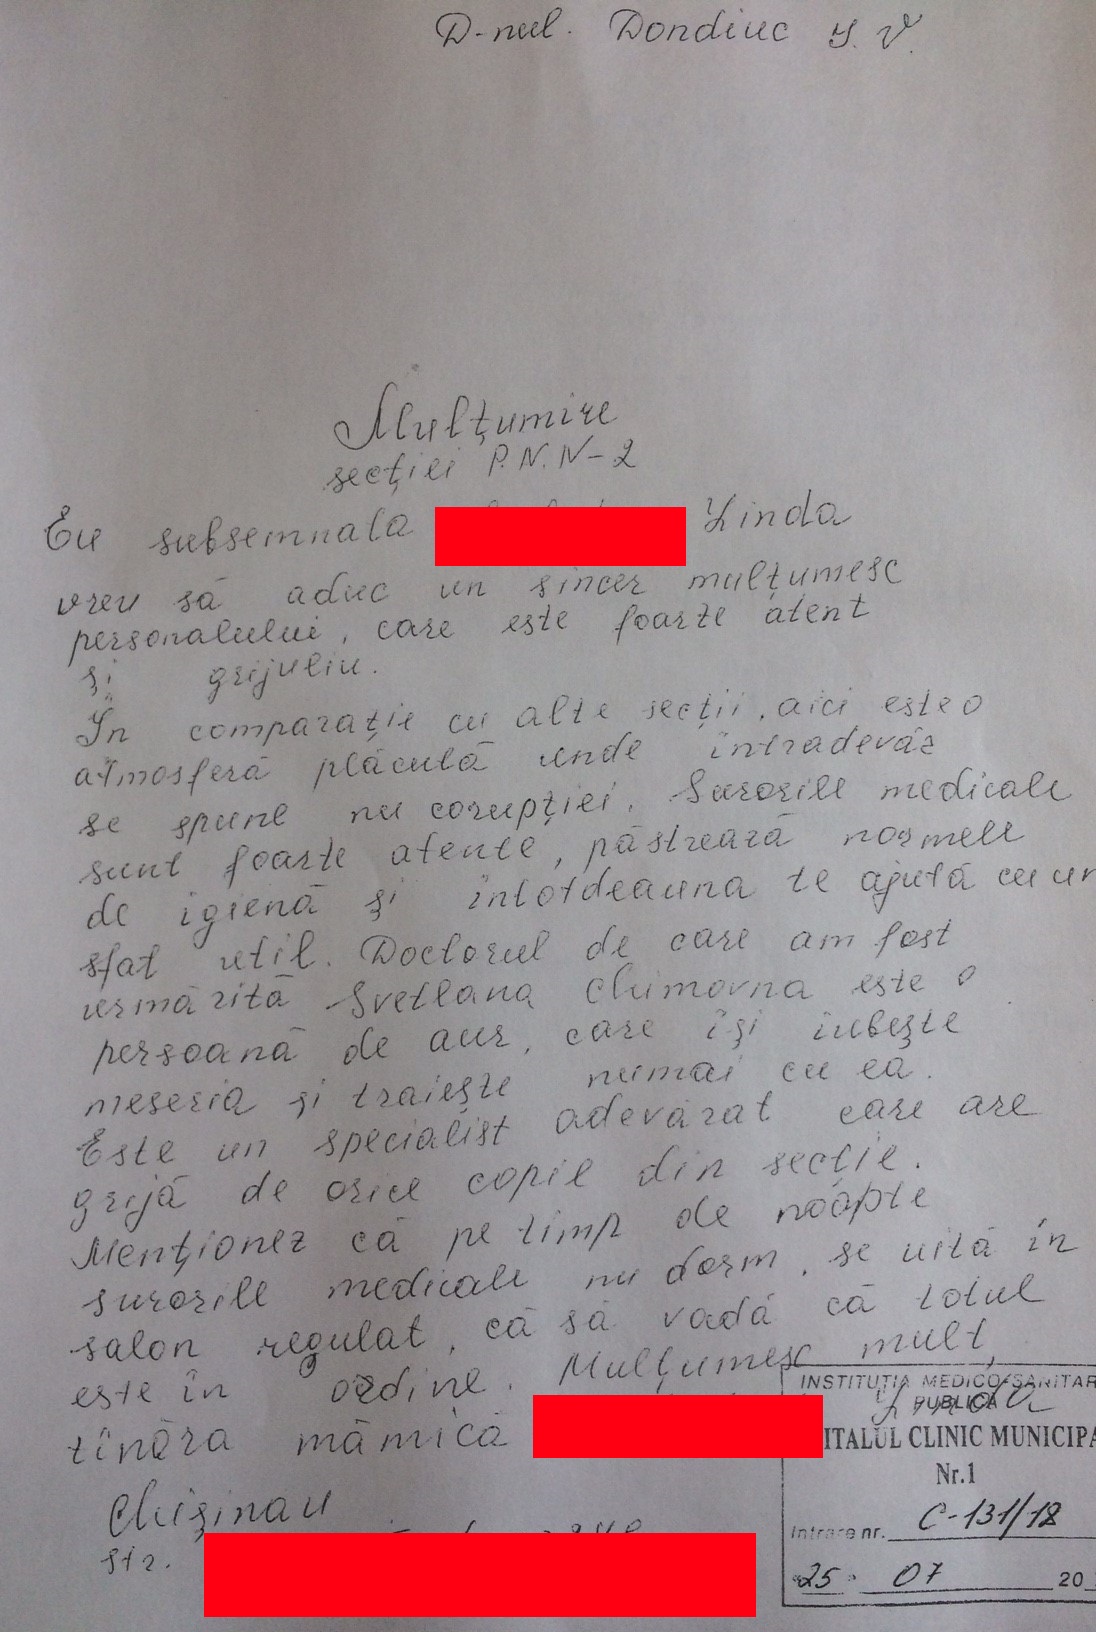 D-nul. Dondiuc Y. V.
Mulțumire
secției P.N.N-2
Eu subsemnala Linda
vreu să aduc un sincer mulțumesc
personalului, care este foarte atent
și grijuliu.
În comparație cu alte secții, aici este o
atmosferă plăcută unde întradevăr
se spune nu corupției. Surorile medicale
sunt foarte atente, păstrează normele
de igienă și întotdeauna te ajută cu un
sfat util. Doctorul de care am fost
urmărită Svetlana Chimovna este o
persoană de aur, care își iubește
meseria și traiește numai cu ea.
Este un specialist adevărat care are
grijă de orice copil din secție.
Menționez că pe timp de noapte
surorile medicale nu dorm, se uită în
salon regulat, că să vadă că totul
este în ordine. Mulțumesc mult,
tînăra mămică Linda
Chișinau
str.
INSTITUȚIA MEDICO-SANITAR
PUBLICĂ
ITALUL CLINIC MUNICIPA
Nr.1
Intrare nr. C-131/18
"25" 07 20